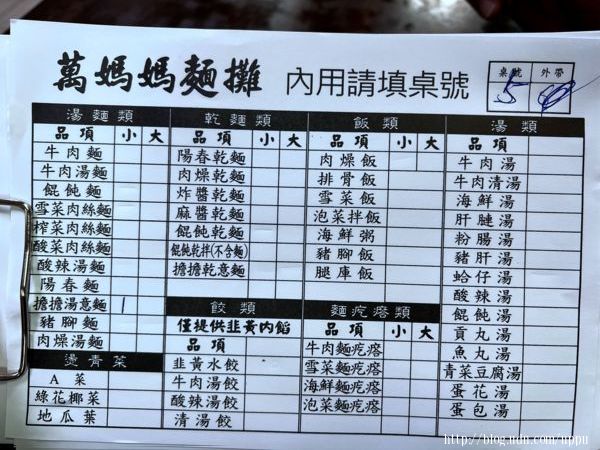 萬媽媽麵攤 內用請填桌號
桌號 外帶
5
湯麵類
品項 小 大
牛肉麵
牛肉湯麵
餛飩麵
雪菜肉絲麵
榨菜肉絲麵
酸菜肉絲麵
酸辣湯麵
陽春麵
擔擔湯意麵 1
豬腳麵
肉燥湯麵
燙青菜
A菜
綠花椰菜
地瓜葉
乾麵類
品項 小 大
陽春乾麵
肉燥乾麵
炸醬乾麵
麻醬乾麵
餛飩乾麵
餛飩乾拌(不含麵)
擔擔乾意麵
餃類
僅提供韭黃內餡
品項
韭黃水餃
牛肉湯餃
酸辣湯餃
清湯餃
飯類
品項 小 大
肉燥飯
排骨飯
雪菜飯
泡菜拌飯
海鮮粥
豬腳飯
腿庫飯
麵疙瘩類
品項 小 大
牛肉麵疙瘩
雪菜麵疙瘩
海鮮麵疙瘩
泡菜麵疙瘩
湯類
品項
牛肉湯
牛肉清湯
海鮮湯
肝腱湯
粉腸湯
豬肝湯
蛤仔湯
酸辣湯
餛飩湯
貢丸湯
魚丸湯
青菜豆腐湯
蛋花湯
蛋包湯
http://blog.udn.com/uppu